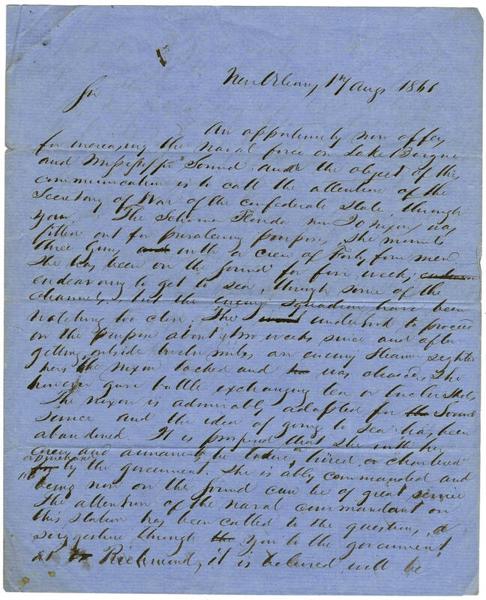 New Orleans 17 Augt 1861
Sir
An opportunity now offers
for increasing the naval force on Lake Borgne
and Mississippi Sound and the object of this
communication is to call the attention of the
Secretary of War of the Confederate State, through
you. The Schooner
fitted out for privateering purposes, She mounts
three guns with a crew of Forty four men
She has been on the Sound for five weeks
endeavoring to get to sea, through some of the
channels, but the enemy squadron have been
watching too close. She undertook to proceed
on the purpose about two weeks since and after
getting outside twelve miles an enemy Steamer sighted
her, the Nixon tacked and was chased. She
however gave battle exchanging ten or twelve shots,
The Nixon is admirably adapted for the Sound
Service and the idea of going to Sea has been
abandoned. It is proposed that she with her
crew and armament be hired, or chartered
by the government. She is ably commanded and
being now on the Sound can be of great service
The attention of the naval commandant on
this Station has been called to the question, a
suggestion through you to the government
at Richmond, it is believed will be